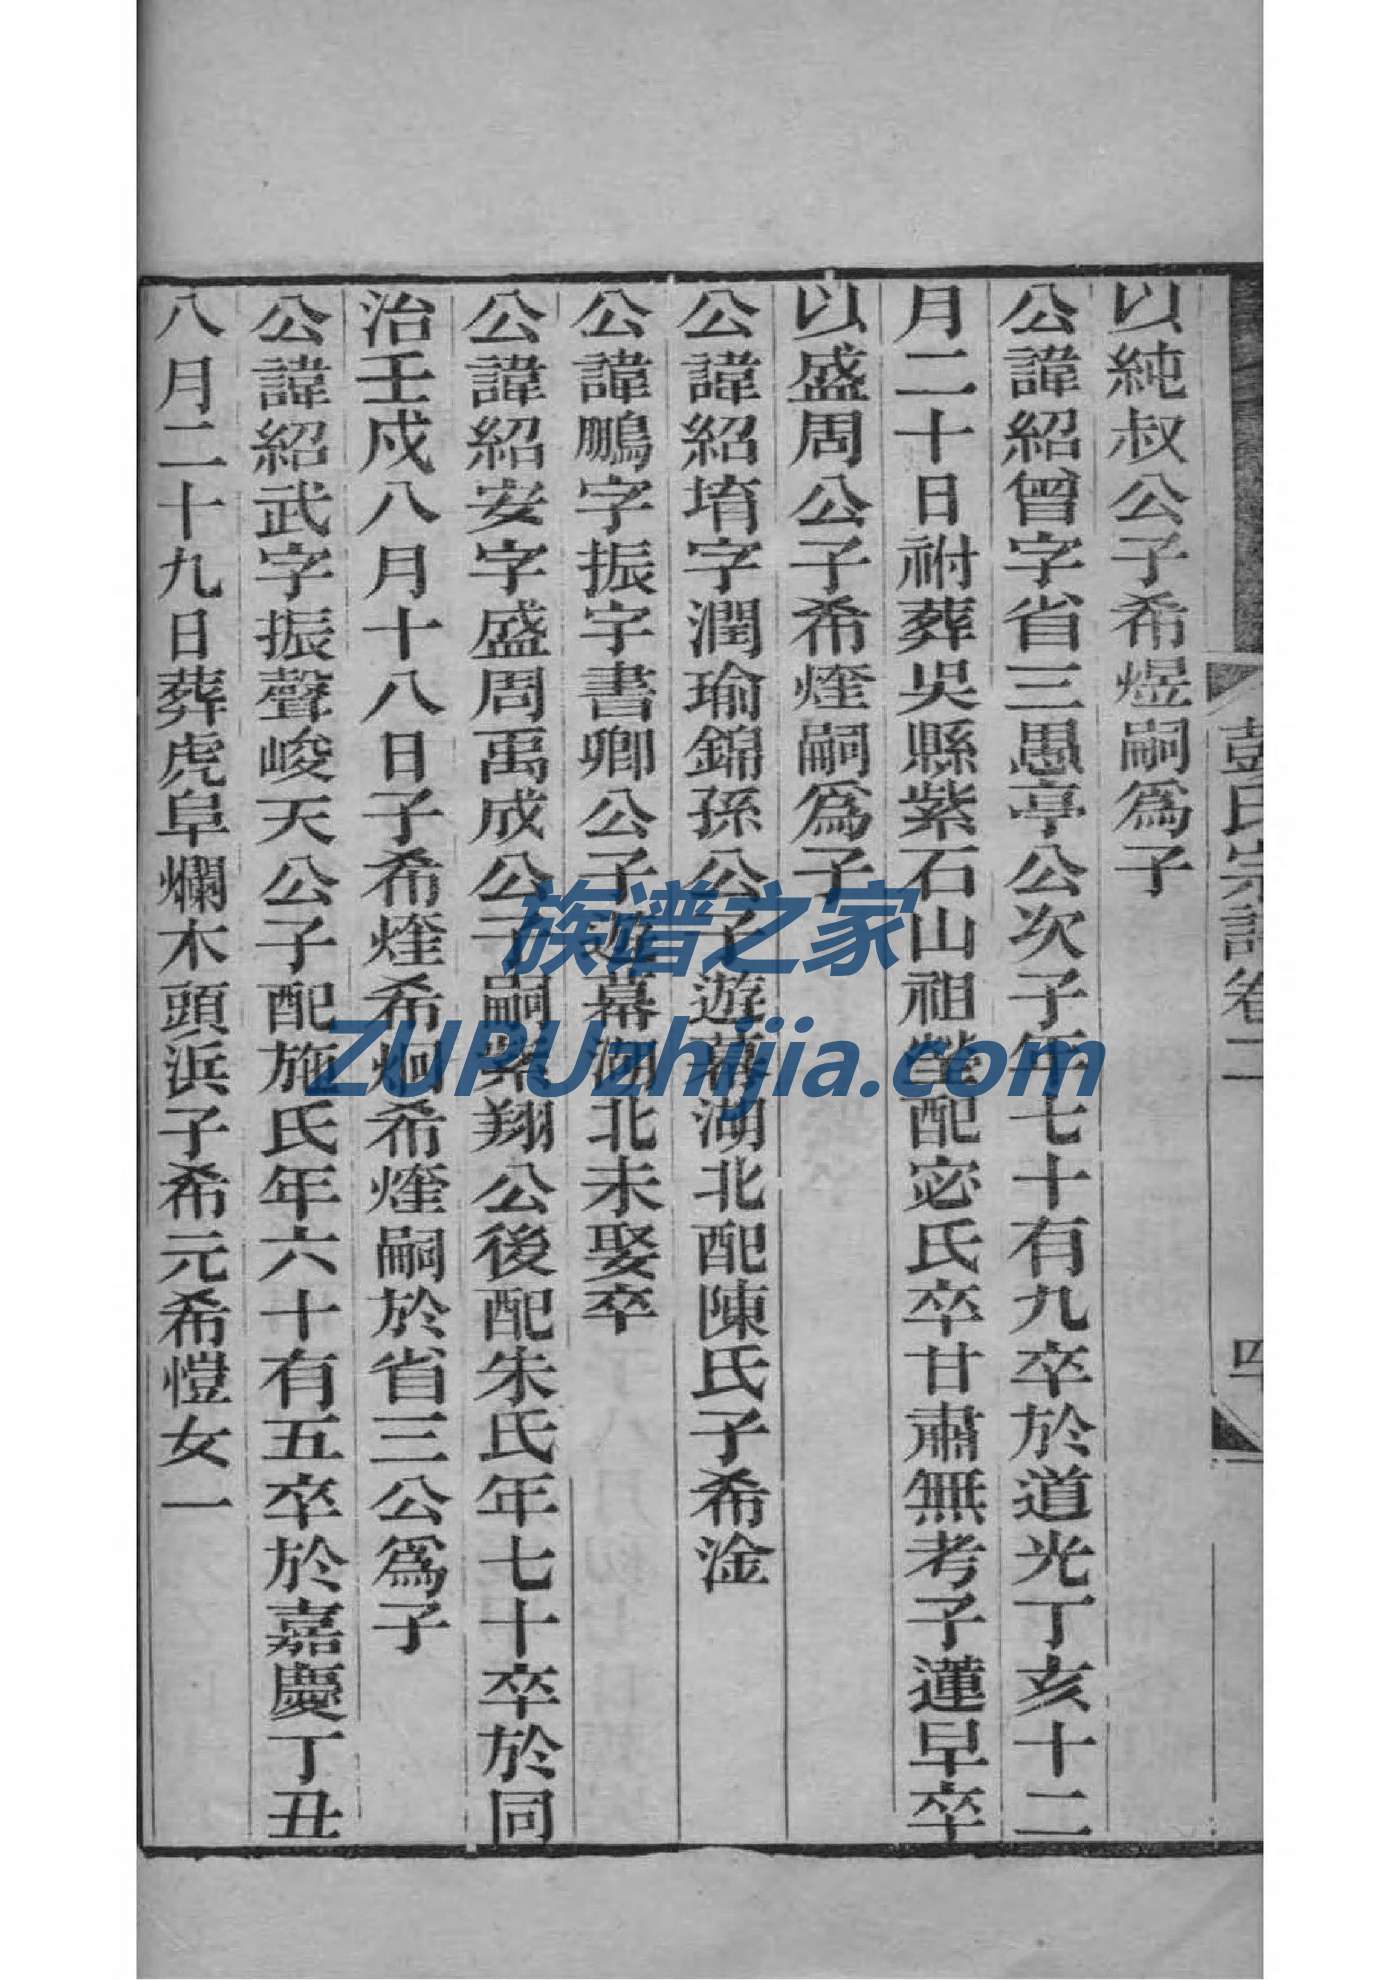 彭氏宗譜卷二
四
以純叔公子希煜嗣爲子
公諱紹曾字省三愚亭公次子年七十有九卒於道光丁亥十二
月二十日祔葬吳縣紫石山祖塋配宓氏卒甘肅無考子蓮早卒
以盛周公子希煃嗣爲子
公諱紹堉字潤瑜錦孫公子遊幕湖北配陳氏子希淦
公諱鵬字振字書卿公子遊幕湖北未娶卒
公諱紹安字盛周禹成公子嗣紫翔公後配朱氏年七十卒於同
治壬戍八月十八日子希煃希炯希煃嗣於省三公爲子
公諱紹武字振聲峻天公子配施氏年六十有五卒於嘉慶丁丑
八月二十九日葬虎阜爛木頭浜子希元希愷女一
族谱之家
ZUPUzhijia.com